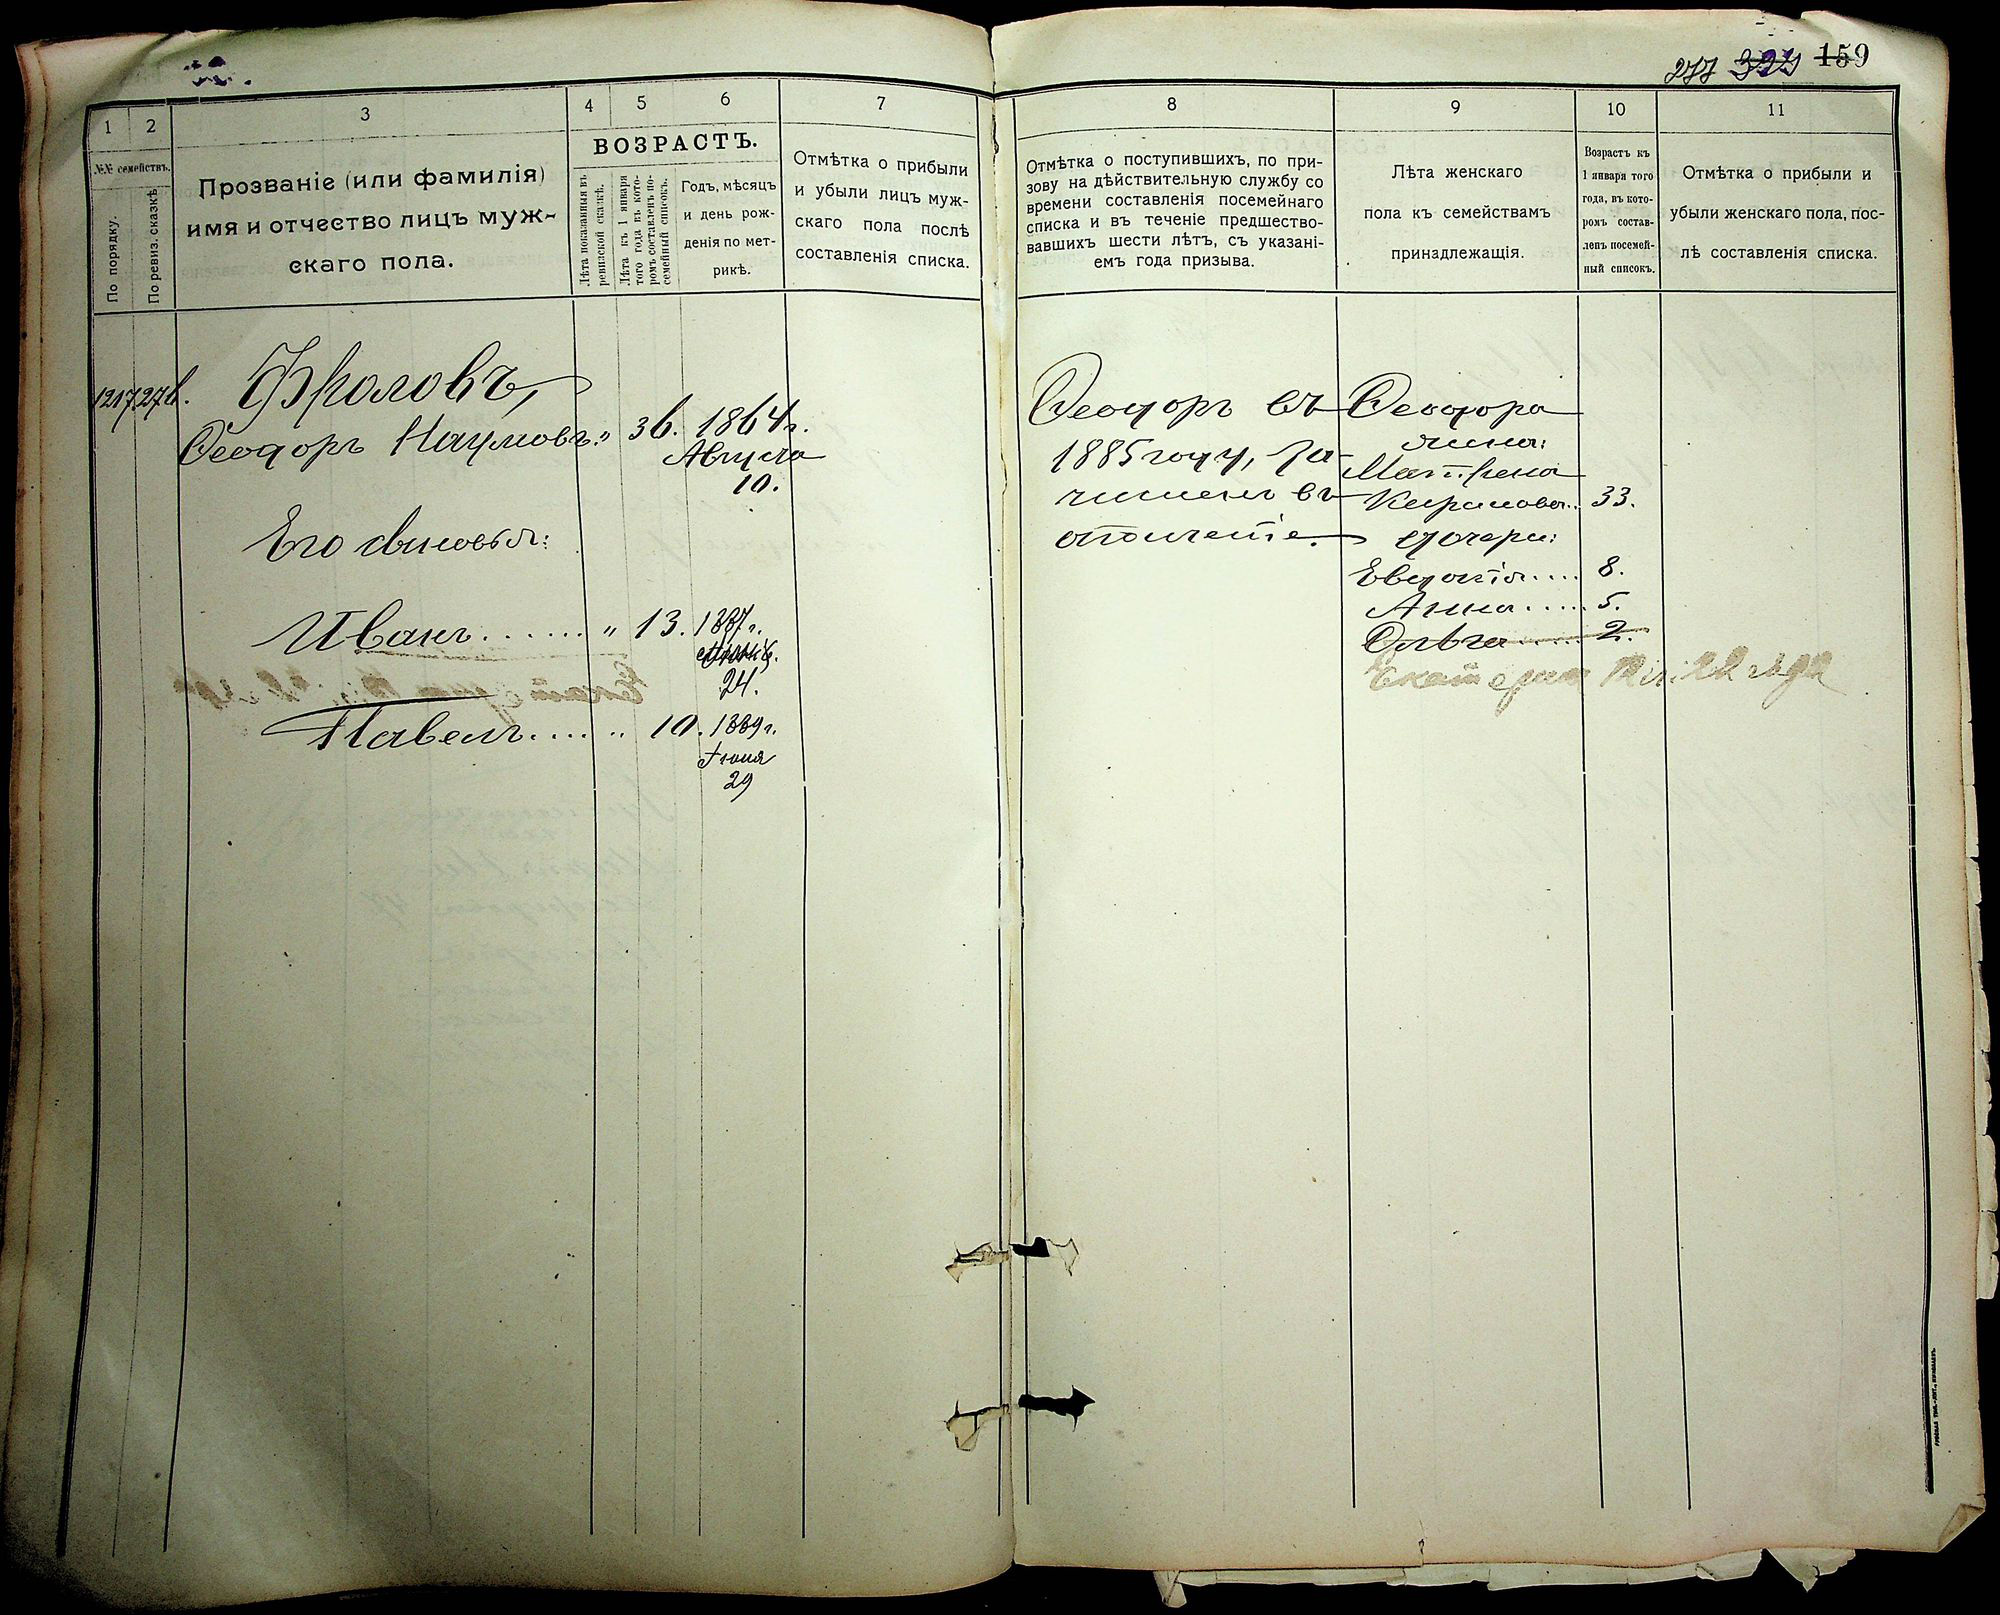 277 324 159
1 2 3 4 5 6 7 8 9 10 11
№№ семействъ.
По порядку.
По ревиз. сказкѣ
Прозваніе (или фамилія)
имя и отчество лицъ муж-
скаго пола.
ВОЗРАСТЪ.
Лѣта показанныя въ
ревизской сказкѣ.
Лѣта къ 1 января
того года въ кото-
ромъ составленъ по-
семейный списокъ.
Годъ, мѣсяцъ
и день рож-
денія по мет-
рикѣ.
Отмѣтка о прибыли
и убыли лицъ муж-
скаго пола послѣ
составленія списка.
Отмѣтка о поступившихъ, по при-
зову на дѣйствительную службу со
времени составленія посемейнаго
списка и въ теченіе предшество-
вавшихъ шести лѣтъ, съ указані-
емъ года призыва.
Лѣта женскаго
пола къ семействамъ
принадлежащія.
Возрастъ къ
1 января того
года, въ кото-
ромъ состав-
ленъ посемей-
ный списокъ.
Отмѣтка о прибыли и
убыли женскаго пола, пос-
лѣ составленія списка.
1217
Фроловъ,
Ѳеодоръ Наумовъ " 36. 1864 г.
Августа
10.
Его сыновья:
Иванъ...... " 13. 1887 г.
24.
Павелъ.... " 10. 1889 г.
Іюня
29
Ѳеодоръ въ
1885 году, за-
численъ въ
ополченіе.
Ѳеодора
жена:
Матрена
Кирилова.. 33.
дочери:
Евдокія.... 8.
Анна..... 5.
Ольга..... 2.
Екатерина